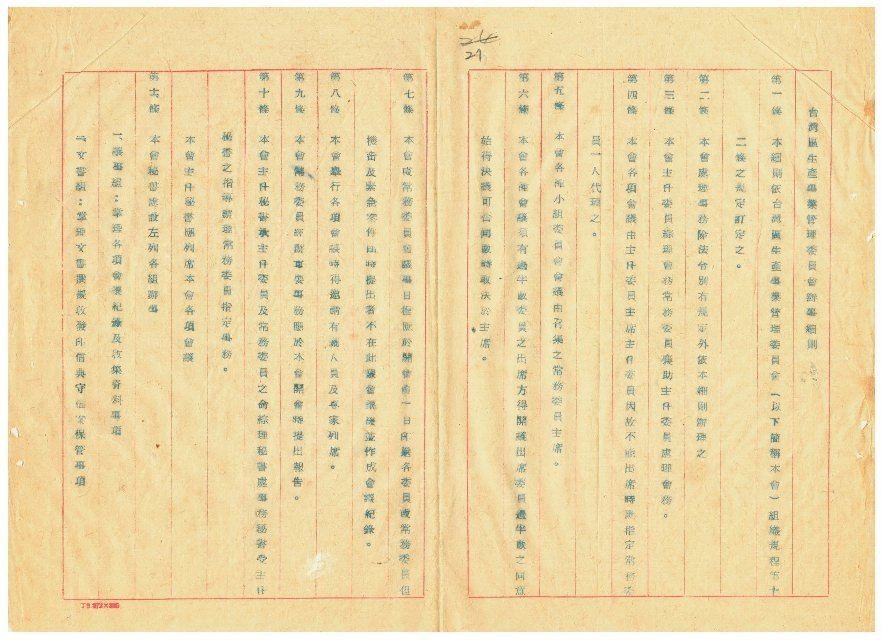 24
21
台灣區生產事業管理委員會辦事細則
第一條 本細則依台灣區生產事業管理委員會(以下簡稱本會)組織規程第十
二條之規定訂定之。
第二條 本會處理事務除法令別有規定外依本細則辦理之
第三條 本會主任委員綜理會務常務委員襄助主任委員處理會務。
第四條 本會各項會議由主任委員主席主任委員因故不能出席時應指定常務委
員一人代理之。
第五條 本會各種小組委員會會議由召集之常務委員主席。
第六條 本會各種會議須有過半數委員之出席方得開議出席委員過半數之同意
始得決議可否同數時取決於主席。
第七條 本會或常務委員會議事日程應於開會前一日印送各委員或常務委員但
機密及緊急案件臨時提出者不在此限會議後並作成會議紀錄。
第八條 本會舉行各項會議時得邀請有關人員及專家列席。
第九條 本會常務委員經辦事要事務應於本會開會時提出報告。
第十條 本會主任秘書承主任委員及常務委員之命綜理秘書處事務秘書受主任
秘書之指導辦理常務委員指定事務。
本會主任秘書應列席本會各項會議
第十一條 本會秘書處設左列各組辦事
一、議事組:掌理各項會議紀錄及收集資料事項
二、文書組:掌理文書撰擬收發印信典守檔案保管事項